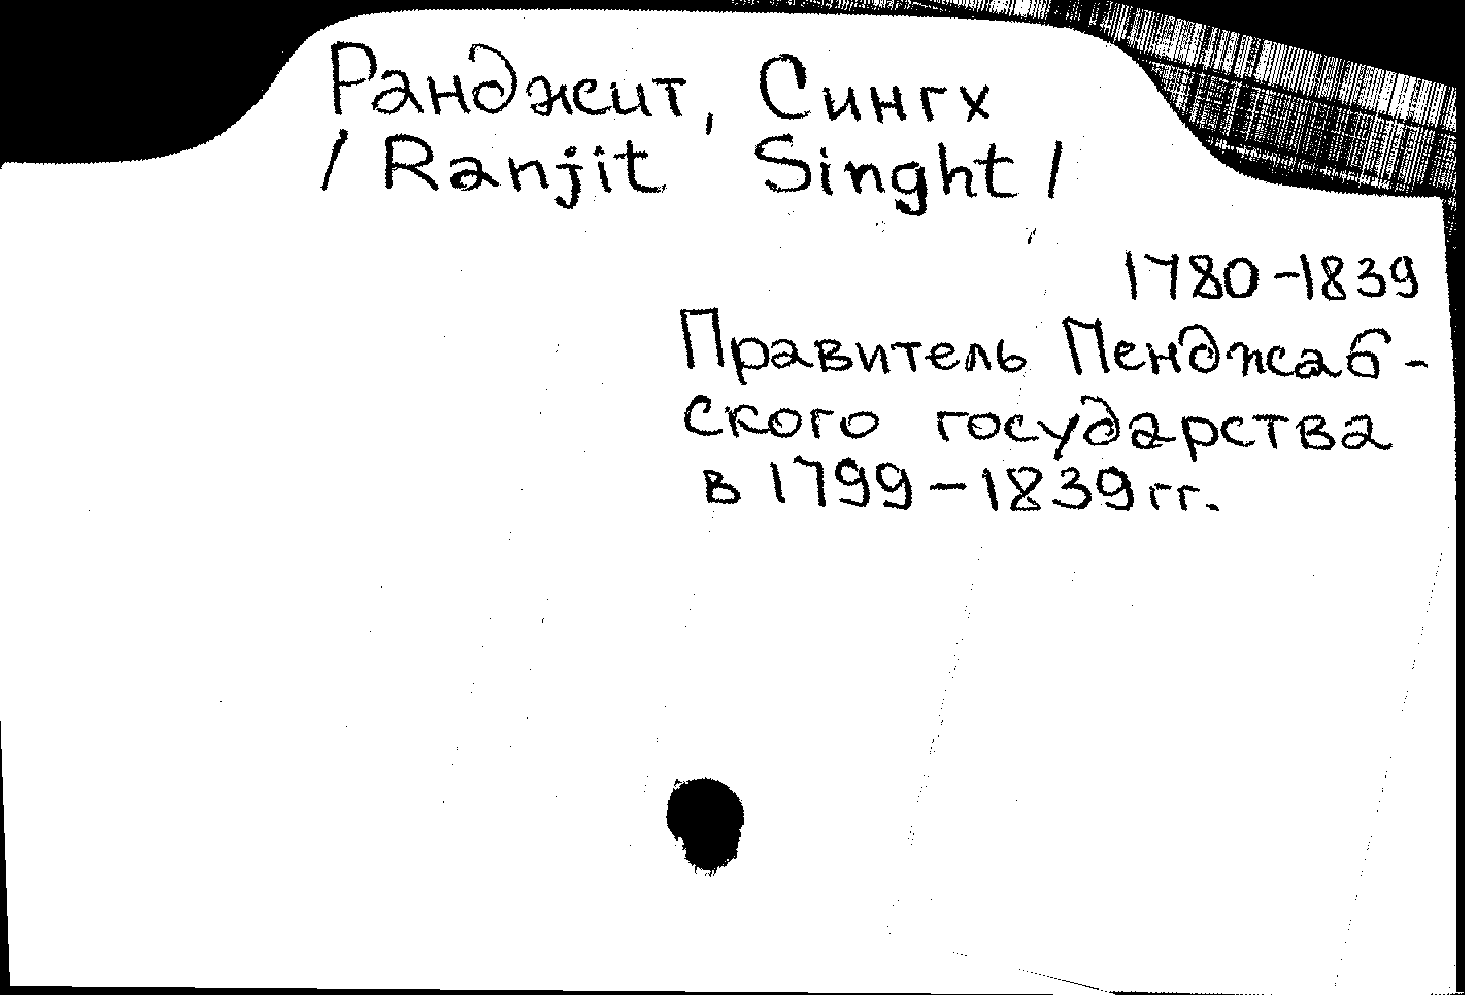 Ранджит, Сингх
/ Ranjit Singht /
1780-1839
Правитель Пенджаб-
ского государства
в 1799-1839 гг.